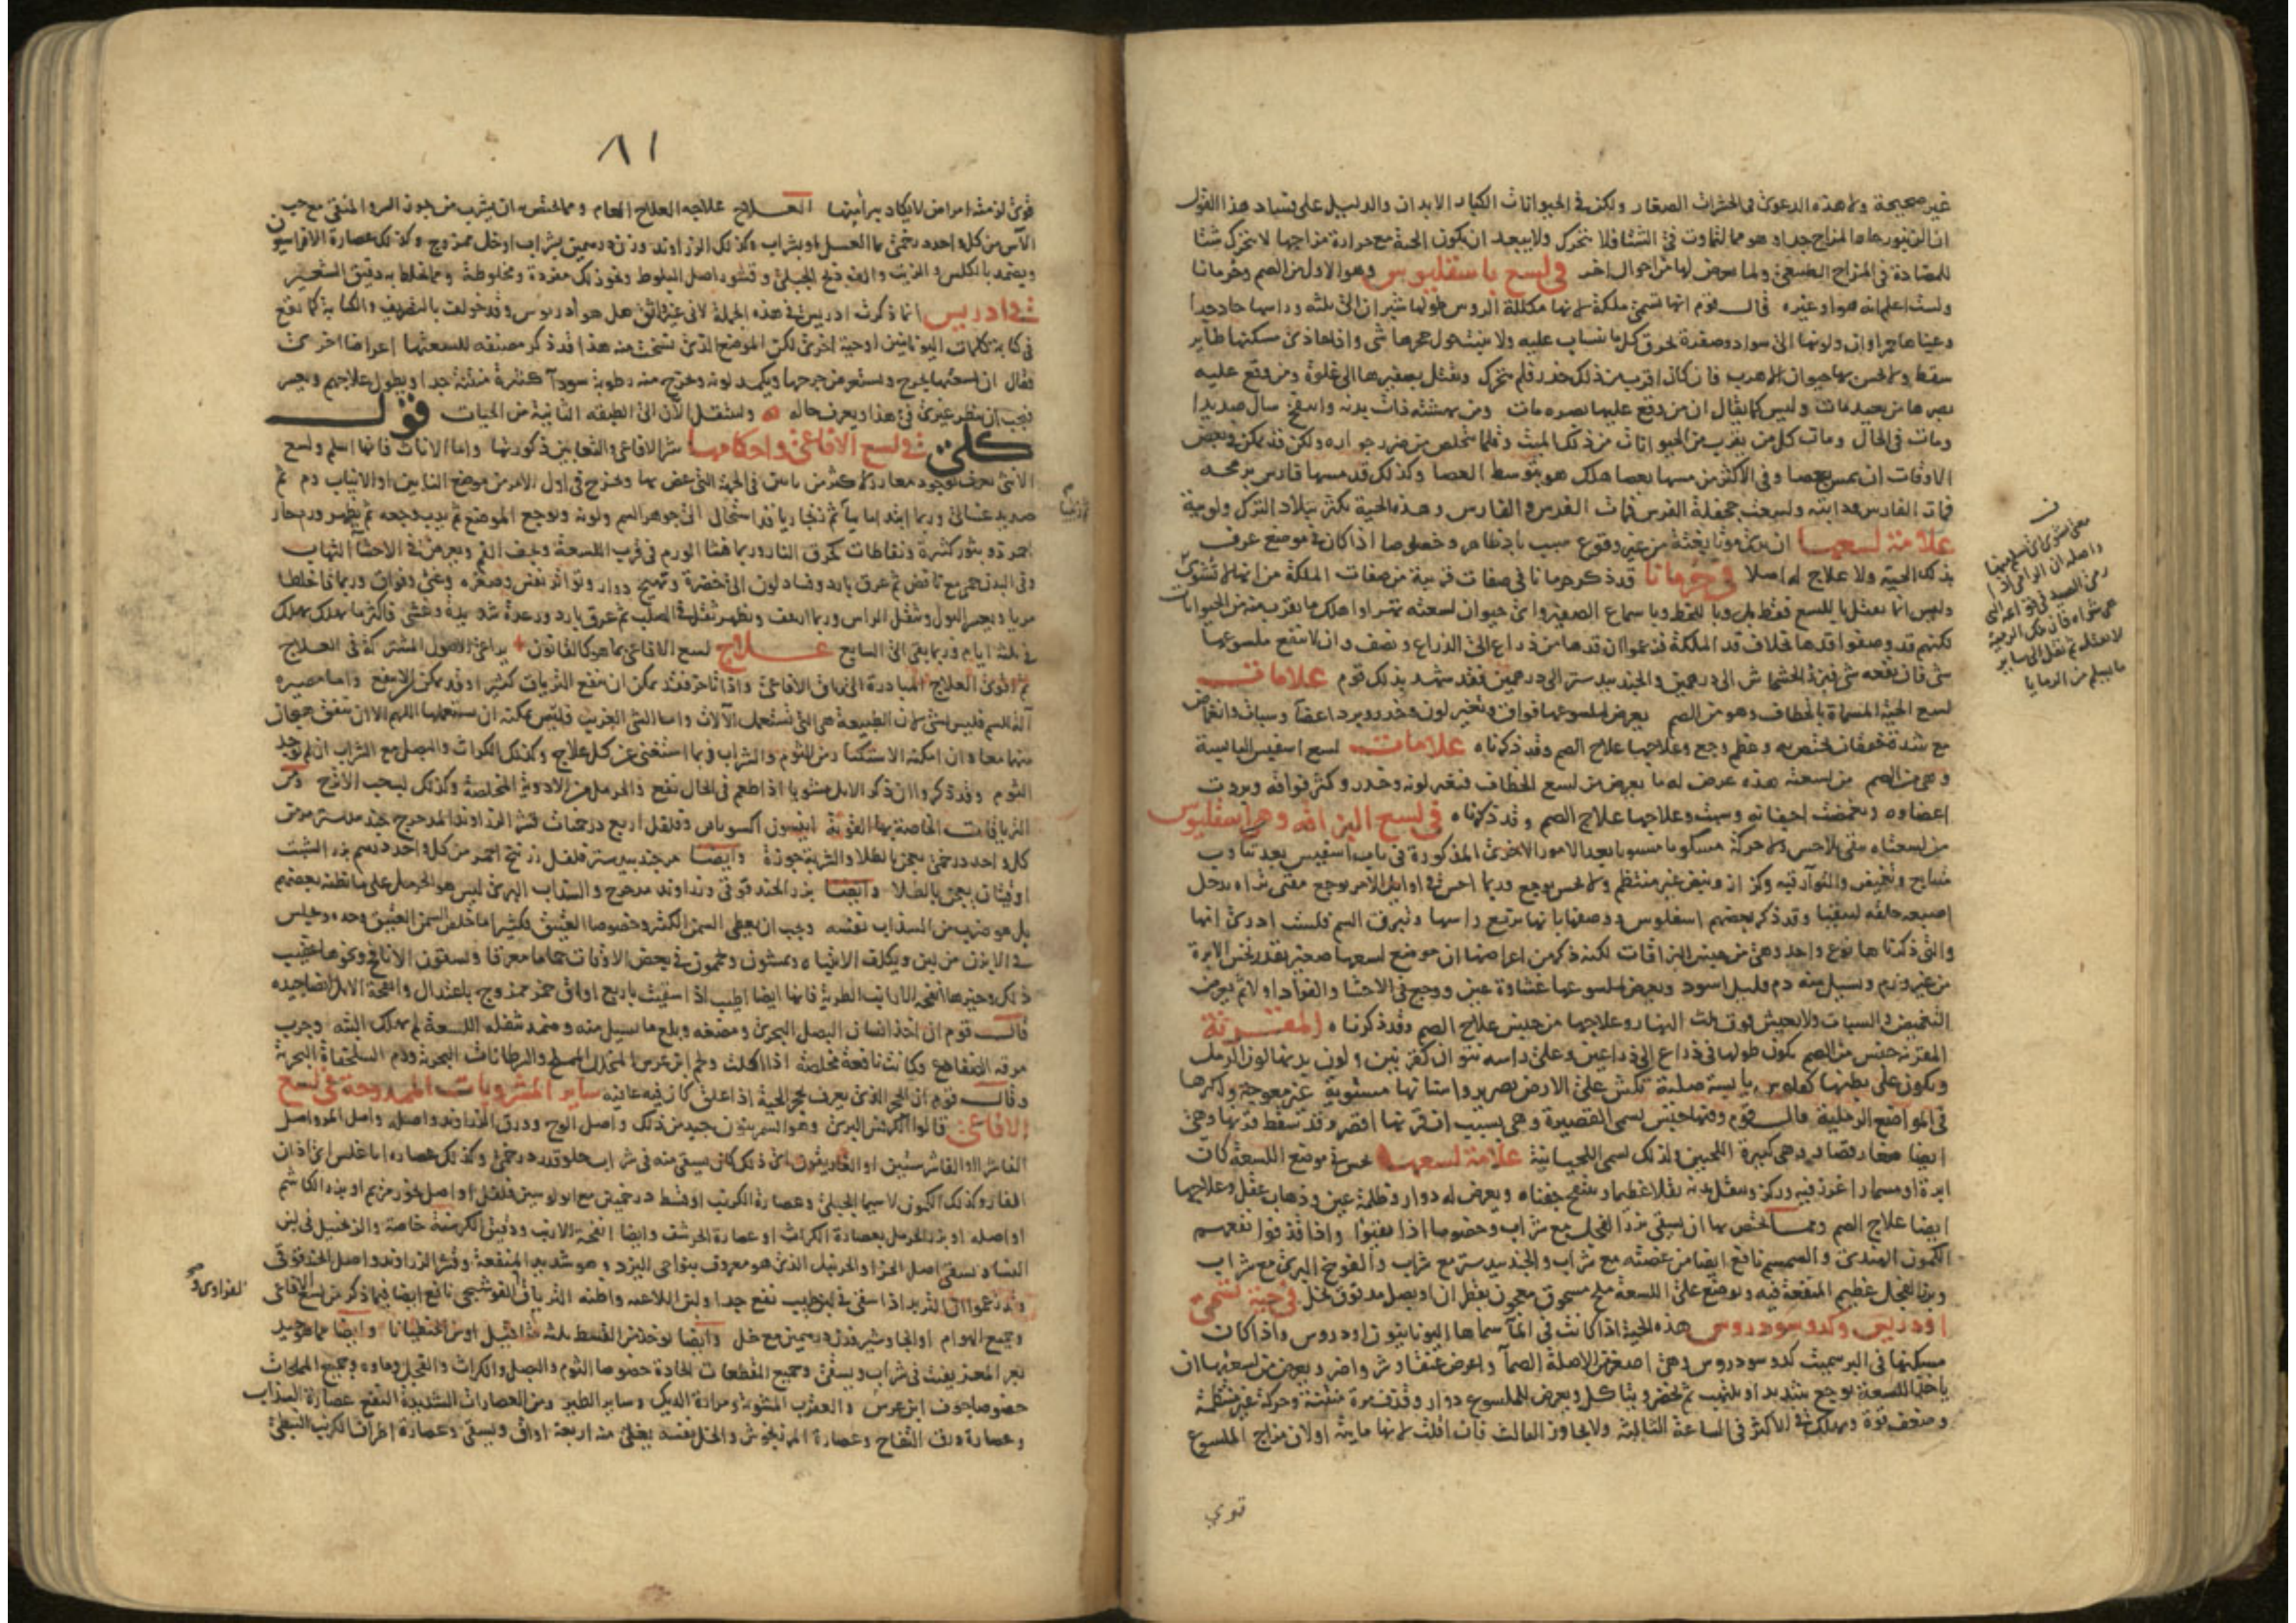 غير صحيحة ولا هذه الدعوى فى الحشرات الصغار ولكن فى الحيوانات الكبار الابدان والدليل على فساد هذا القول
ان الزنبور حار المزاج جدا وهو مما يتماوت فى الشتا فلا يتحرك ولا يبعد ان يكون الحية مع حرارة مزاجها لا يتحرك شتا
للمضادة فى المزاج الطبيعى ولما يعرض لها من احوال اخر فى لسع باسفليوس وهو الاول من الصم وخرمانا
ولست اعلم انه هو او غيره قال قوم انها تسمى ملكة لانها مكللة الروس طولها شبران الى ثلثه وراسها حاد جدا
وعيناها حمراوان ولونها الى سواد وصفرة تحرق كل ما تنساب عليه ولا ينبت حول جحرها شى واذا حاذى مسكنها طاير
سقط ولا يحس بها حيوان الا هرب فان كان اقرب من ذلك خدر فلم يتحرك وتقتل بصفيرها الى غلوة ومن وقع عليه
بصرها من بعيد مات وليس كما يقال ان من وقع عليها بصره مات ومن نهشته ذاب بدنه وانتفخ وسال صديدا
ومات فى الحال ومات كل من يقرب من الحيوانات من ذلك الميت وقلما يتخلص من ضرر جواره ولكن قد يمكن فى بعض
الاوقات ان يمس بعصا وفى الاكثر من مسها بعصا هلك هو بتوسط العصا وكذلك قد مسها فارس برمحه
فمات الفارس ودابته ولسعت جحفلة الفرس فمات الفرس والفارس وهذه الحية تكثر ببلاد الترك ولوبية
علامة لسعها ان يرى موتا بغتة من غير وقوع سبب باد ظاهر وخصوصا اذا كان فى موضع عرف
بذلك الحية ولا علاج له اصلا فى خرمانا قد ذكر خرمانا فى صفات قريبة من صفات الملكة من انها لا تشوى
وليس انما يقتل باللسع فقط بل وباللحظ وباسماع الصفير واى حيوان لسعته تهرا واهلك ما يقرب منه من الحيوانات
لكنهم قد وصفوا قدها بخلاف قد الملكة فزعموا ان قدها من ذراع الى الذراع ونصف وان لا ينتفع ملسوعها
شى فان نفعه شى فبزر الخشخاش الى درهمين والجندبيدستر الى درهمين فقد شهد بذلك قوم علامات
لسع الحية المسماة بالخطاف وهو من الصم يعرض لملسوعها فواق وتغير لون وخدر وبرد اعضا وسبات وانغماض
مع شدة خفقان تختص به وعظم وجع وعلاجها علاج الصم وقد ذكرناه علامات لسع اسفيس اليابسية
وهى من الصم من لسعته هذه عرض له ما يعرض من لسع الخطاف فتغير لونه وخدر وكثر فواقه وبردت
اعضاوه وتغمضت اجفانه وسبت وعلاجها علاج الصم وقد ذكرناه فى لسع البزاقه وهى اسفليوس
من لسعتاه بقى بلا حس ولا حركة مسكوتا مسبوتا بعد الامور الاخرى المذكورة فى باب اسفيس بعد تثاوب
متتابع وتغميض والتوا رقبه وكزاز ونبض غير منتظم ولا يحس بوجع وربما احس فى اوايل الامر بوجع
اصبعه حلقه ليتقيا وقد ذكر بعضهم اسفليوس ووصفها بانها ترفع راسها وتبزق السم فلست ادرى انها
والتى ذكرناها نوع واحد وهى من جنس البزاقات لكنه ذكر من اعراضها ان موضع لسعها صغير بقدر نخس الابرة
من غير ورم ويسيل منه دم قليل اسود ويعرض لملسوعها غشاوة عين ووجع فى الاحشا والفواد اولا ثم يعرض
التغميض والسبات ولا يعيش فوق ثلث النهار وعلاجها من جنس علاج الصم وقد ذكرناه المقرنة
المقرنه جنس من الصم يكون طولها فى ذراع الى ذراعين وعلى راسه نتوان كقرنين ولون بدنها لون الرمل
ويكون على بطنها كفلوس يابسة صلبة تكش على الارض بصرير واسنانها مستوية غير معوجة واكثرها
فى المواضع الرملية قال قوم ومنها جنس يسمى القصيرة وهى بسبب ان قرنها اقصر وقد تسقط قرنها وهى
ايضا صغار قصار وهى كبيرة اللحيين ولذلك تسمى اللحيانية علامة لسعها يحس فى موضع اللسعة كان
ابرة او مسمارا غرز فيه وركز ويثقل بدنه ثقلا عظيما وينتفخ جفناه ويعرض له دوار وظلمة عين وذهاب عقل وعلاجها
ايضا علاج الصم ومما تختص بها ان يسقى بزر الفجل مع شراب وخصوصا اذا تقيوا واذا قذفوا نفعهم
الكمون الهندى والسمسم نافع ايضا من عضته مع شراب والجندبيدستر مع شراب والفوتنج البرى مع شراب
وبزر الفجل عظيم المنفعة فيه ويوضع على اللسعة ملح مسحوق معجون بقطران او بصل مدقوق بخل فى حية تسمى
اودريس وكدوسودروس هذه الحية اذا كانت فى المآ سماها اليونانيون اودروس واذا كان
مسكنها فى البر سميت كدوسودروس وهى اصغر من الاصلة الصمآ واعرض عنقا وشر واضر ويعرض من لسعتها ان
ياخذ اللسعة بوجع شديد او يلتهب ثم يخضر ويتاكل ويعرض للملسوع دوار وقذف مرة منتنة وحركة غير منتظمة
وضعف قوة ويهلك فى الاكثر فى الساعة الثالثة ولا يجاوز الثالث فان افلت لانها مايية او لان مزاج الملسوع
قوي
معنى تشوى اى تسلم منها
واصله ان الرامى اذا
رمى الصيد
ما يسلم من الرمايا
٨١
قوى لزمته امراض لا يكاد يبرا منها العلاج علاجه العلاج العام ومما يختص به ان يشرب من جوز السرو المنقى مع حب
الآس من كل واحد درخمى بما العسل او بشراب وكذلك الزراوند وزن درهمين بشراب او خل ممزوج وكذلك عصارة الافراسيون
ويضمد بالكلس والزيت والفوتنج الجبلى وقشور اصل البلوط ونحو ذلك مفردة ومخلوطة ومما يخلط به دقيق الشعير
فى ادريس انما ذكرت ادريس فى هذه الجملة لانى غير واثق هل هو اودروس وقد خولفت بالتصريف والكتابة كما يقع
فى كتابة كلمات اليونانيين او حية اخرى لكن الموضع الذى نسخت منه هذا قد ذكر مصنفه للسعتها اعراضا اخرى
فقال ان لسعتها يجرح ويتسع من جرحها ويكمد لونه ويخرج منه رطوبة سودا كثيرة منتنة جدا ويطول علاجهم ويعسر
فيجب ان ينظر غيرى فى هذا ويعرف حاله ولننتقل الآن الى الطبقه الثانية من الحيات قول
كلى فى لسع الافاعى واحكامها شر الافاعى والثعابين ذكورتها واما الاناث فانها اسلم ولسع
الانثى يعرف بوجود مغارز اكثر من نابين فى الجهة التى عض بها ويخرج فى اول الامر من موضع النابين او الانياب دم ثم
صديد غسالى وربما ابتدا ماييا ثم زنجاريا قد استحال الى جوهر السم ولونه ويوجع الموضع ثم يدب وجعه ثم يظهر ورم حار
احمر ذو بثور كثيرة ونفاطات كحرق النار وربما فشا الورم فى قرب اللسعة ويجف الفم ويعرض فى الاحشا التهاب
وفى البدن حمى مع نافض ثم عرق بارد وفساد لون الى الخضرة وتهيج دوار وتواتر نفس وصغره وغثى وفواق وربما قا خلطا
مريا ويعسر البول ويثقل الراس وربما ارعف ويظهر ثقل فى الصلب ثم عرق بارد ورعدة شديدة وغشى واكثر ما يهلك يهلك
فى ثلثة ايام وربما بقى الى السابع علاج لسع الافاعى بما هو كالقانون يراعى الاصول المشتركة فى العلاج
ثم اقوى العلاج المبادرة الى ترياق الافاعى واذا تاخر فقد يمكن ان ينفع الترياق كثيرا وقد يمكن ان لا ينفع واما مصيره
آلة السم فليس بشى لان الطبيعة هى التى تستعمل الآلات واما الشى الغريب فليس يمكنه ان يستعملها اللهم الا ان يتفق هيجان
منهما معا وان امكنه الاستكثار من الثوم والشراب فربما استغنى عن كل علاج وكذلك الكراث والبصل مع الشراب ان لم يوجد
الثوم وقد ذكروا ان ذكر الايل مشويا اذا اطعم فى الحال نفع والحرمل من الادوية المخلصة وكذلك لب حب الاترج ومن
الترياقات الخاصة بها القوية انيسون اكسوبافن وفلفل اربع درخميات قشر الزراوند المدحرج جندبيدستر من
كل واحد درخمى يعجن بالطلا والشربة جوزة وايضا مر جندبيدستر فلفل زرنيخ احمر من كل واحد درهم بزر الشبت
اوقيتان يعجن بالطلا وايضا بزر الحندقوقى وزراوند مدحرج والسذاب البرى ليس هو الحرمل على ما ظنه بعضهم
بل هو ضرب من السذاب نفسه ويجب ان يعطى السمن الكثير وخصوصا العتيق فكثيرا ما خلص السمن العتيق وحده ويجلس
فى الابزن من لبن ويكلف الانتباه ويمشون ويحمون فى بعض الاوقات حماما معرقا ويسقون الانافح ونحوها عقيب
ذلك وخيرها انفحة الارانب الطرية فانها ايضا اطيب اذا سقيت باربع اواق خمر ممزوج باعتدال وانفحة الايل ايضا جيده
قالت قوم ان اخذ انسان البصل البحرى ومضغه وبلع ما يسيل منه وضمد بثفله اللسعة لم يهلك البته وجرب
مرقة الضفادع وكانت نافعة مخلصة اذا اكلت ولحم ابن عرس المنخل المملح والسرطانات البحرية ودم السلحفاة البحرية
وقال قوم ان الحجر الذى يعرف بحجر الحية اذا علق كان فيه عافيه ساير المشروبات الممدوحة فى لسع
الافاعى قالوا الكرفس البرى وهو السمرنيون جيد من ذلك واصل الوج وورق الزراوند واصله واصل المر واصل
الفاشرا والفاشرستين او الفاريقون اى ذلك كان يسقى منه فى شراب حلو قدر درخمى وكذلك عصاره اناغلس اى اذان
الفار وكذلك الكمون لا سيما الجبلى وعصارة الكرنب او قسط درخميتين مع اوبولوسين فلفل او اصل بخور مريم او بزر الكاشم
او اصله او بزر الحرمل بعصارة الكراث او عصارة الحرشف وايضا انفحة الارنب ودقيق الكرسنة خاصة والزنجبيل فى لبن
النسا ويسقى اصل الحزا والحزنبل الذى هو معروف بنواحى اليزد وهو شديد المنفعة وقشر الزراوند واصل الحندقوقى
وقد زعموا ان التربد اذا سقى فى لبن حليب نفع جدا ولبن اللاعيه واظنه الترياق الفوشنجى نافع ايضا فيما ذكر من لسع الافاعى
وجميع الهوام او الجاوشير قدر درهمين مع خل وايضا يوخذ من القسط ثلثة مثاقيل او من الجنطيانا وايضا مما هو جيد
بعر المعز يفت فى شراب ويسقى وجميع المقطعات الحادة خصوصا الثوم والبصل والكراث والفجل وماوه وجميع المملحات
خصوصا جوف ابن عرس والعقرب المشوية ومرارة الديك وساير الطير ومن العصارات الشديدة النفع عصارة السذاب
وعصارة ورق التفاح وعصارة المرزنجوش والخل نفسه يغلى منه اربعة اواق ويسقى وعصارة اطراف الكرنب النبطى